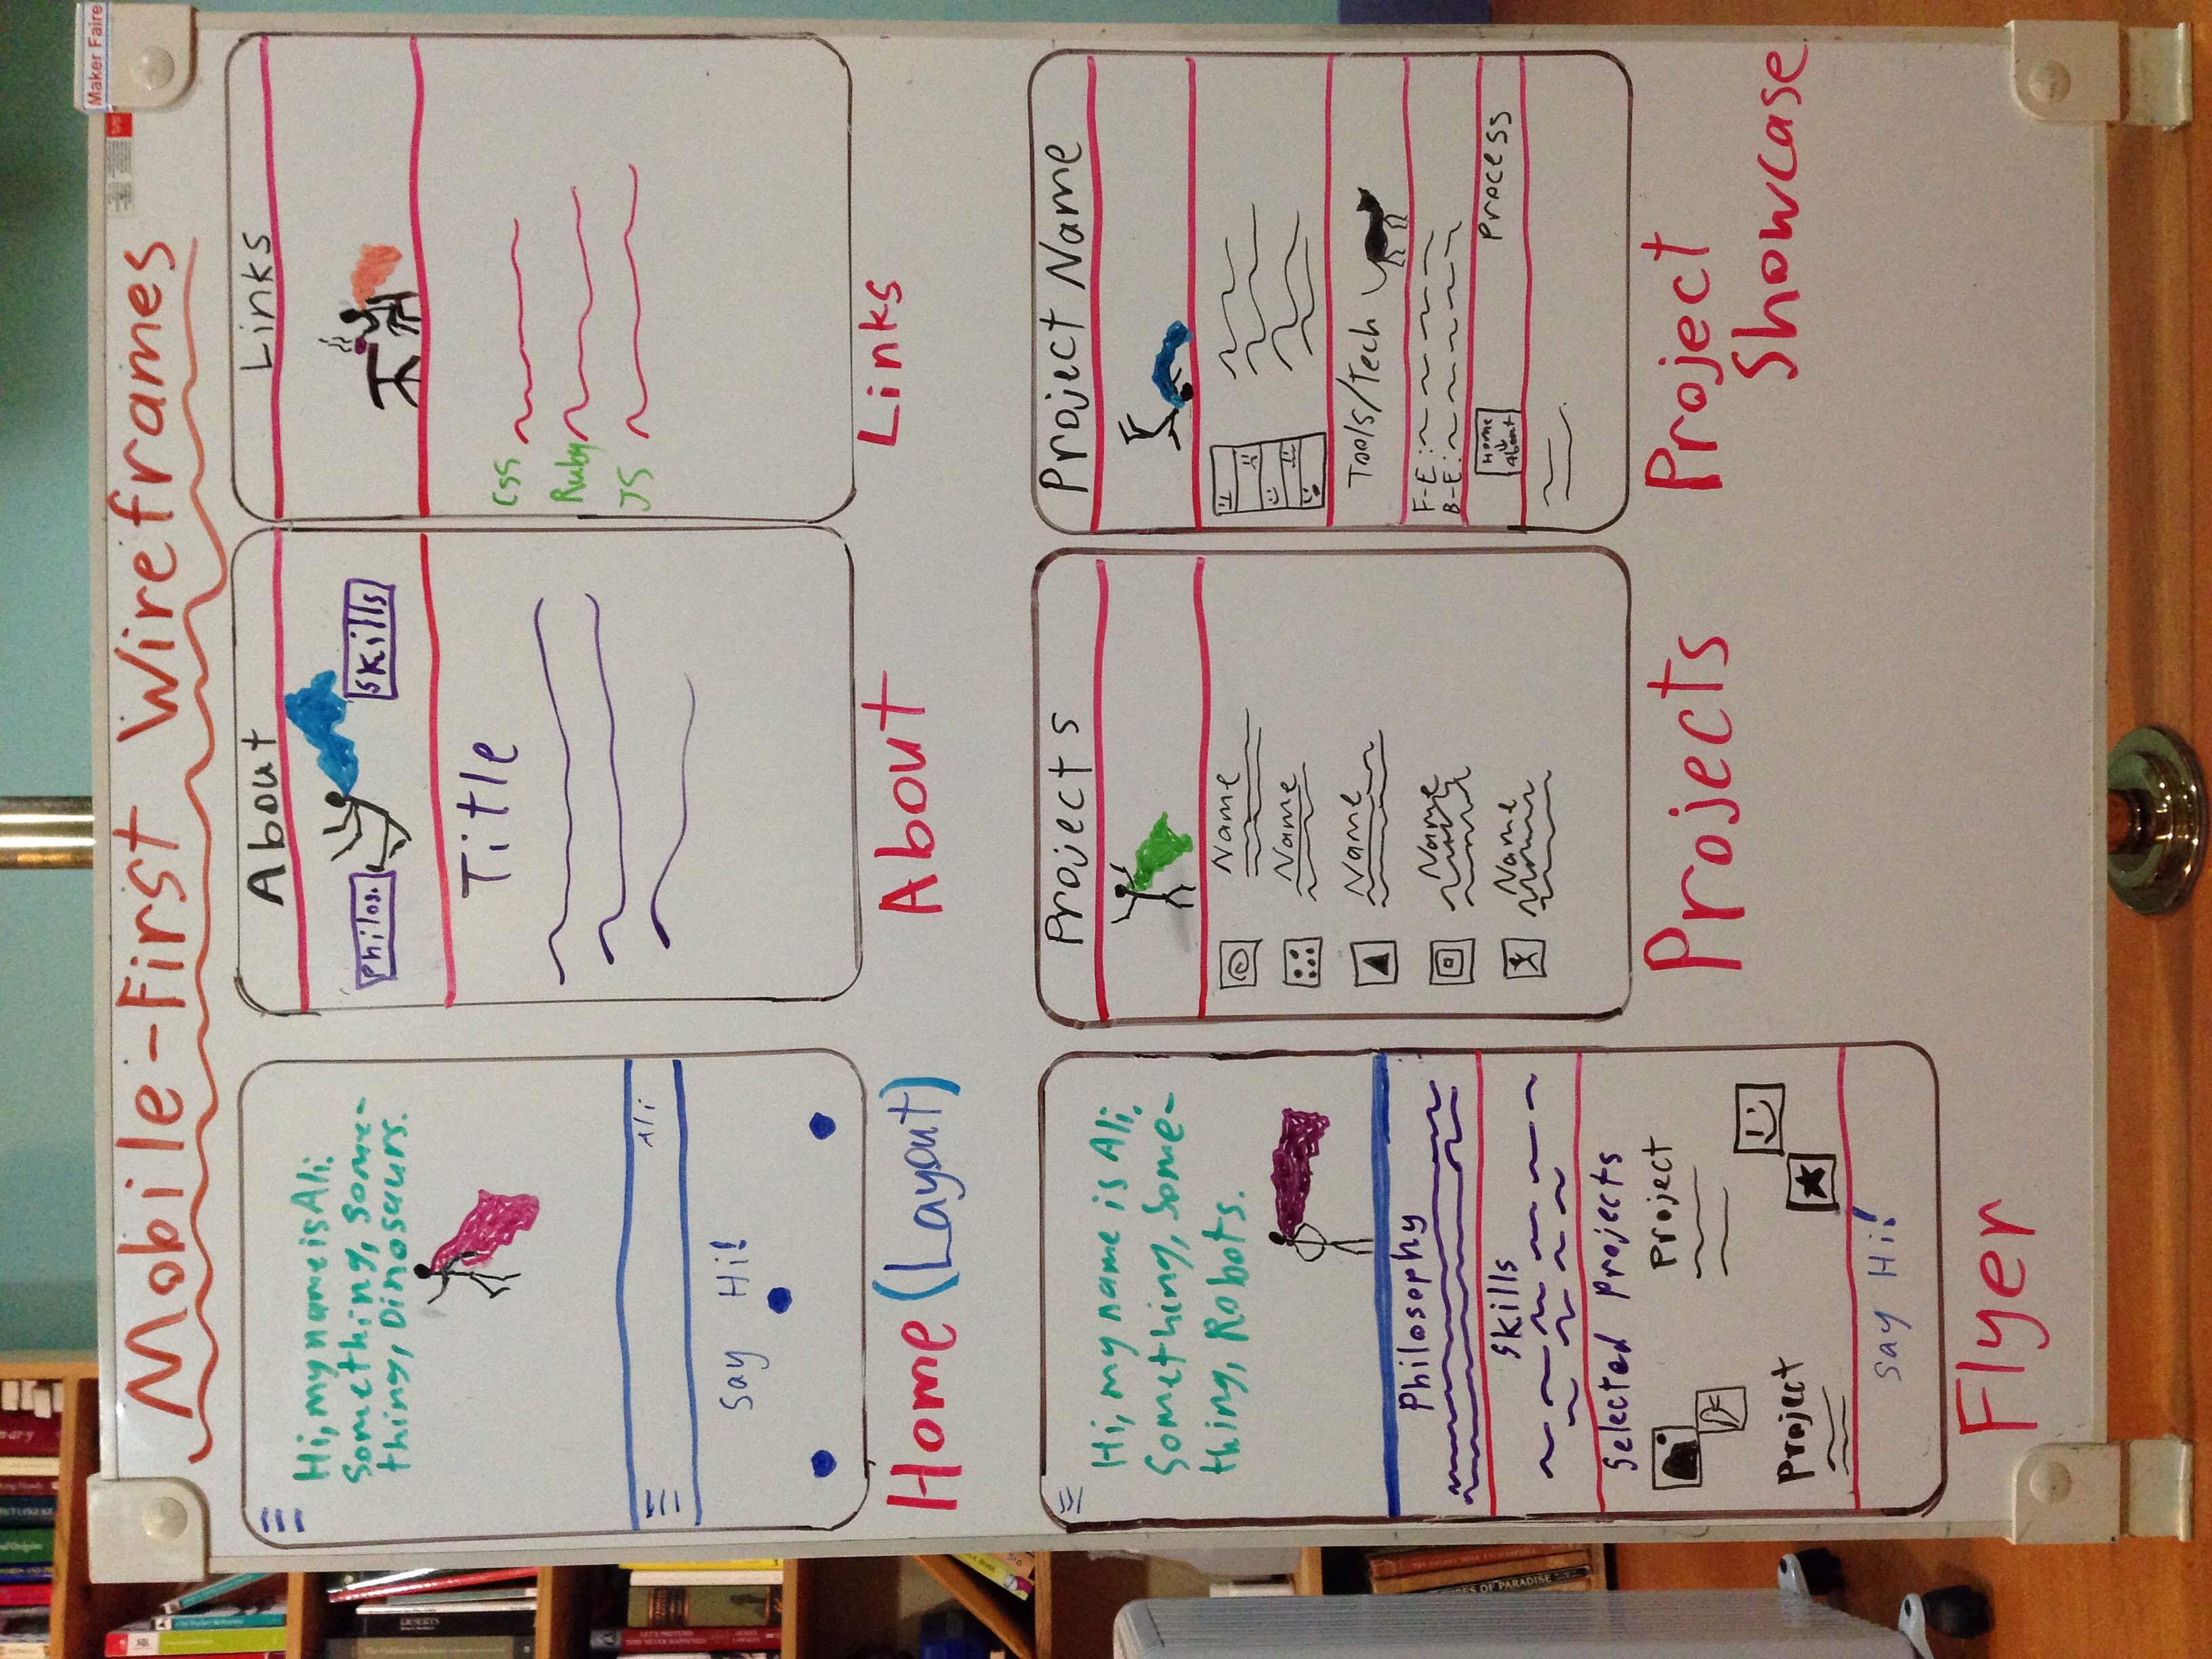 Maker Faire
Mobile-First Wireframes
Hi, my name is Ali.
Something, Some-
thing, Dinosaurs.
Ali
Say Hi!
Home (Layout)
About
Philos.
Skills
Title
About
Links
CSS
Ruby
JS
Links
Hi, my name is Ali.
Something, Some-
thing, Robots.
Philosophy
Skills
Selected Projects
Project
Project
Say Hi!
Flyer
Projects
Name
Name
Name
Name
Name
Projects
Project Name
Tools/Tech
F-E:
B-E:
Home
About
Process
Project
Showcase